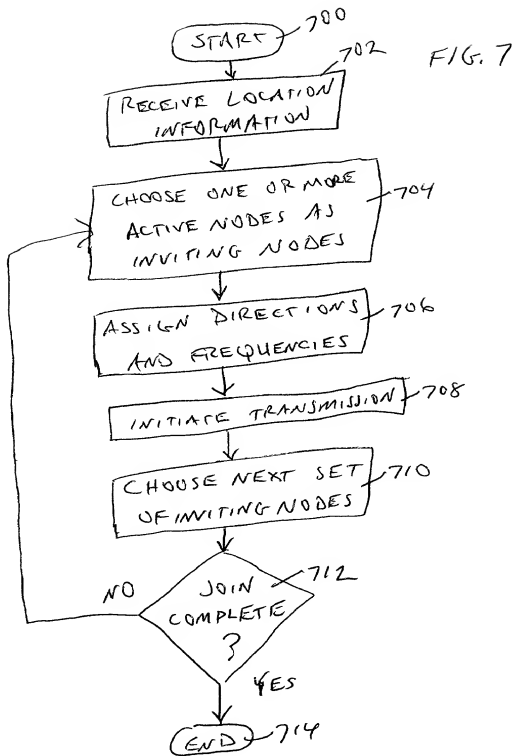 START
700
FIG. 7
702
RECEIVE LOCATION
INFORMATION
CHOOSE ONE OR MORE
ACTIVE NODES AS
INVITING NODES
704
ASSIGN DIRECTIONS
AND FREQUENCIES
706
INITIATE TRANSMISSION
708
CHOOSE NEXT SET
OF INVITING NODES
710
712
NO
JOIN
COMPLETE
?
YES
END
714